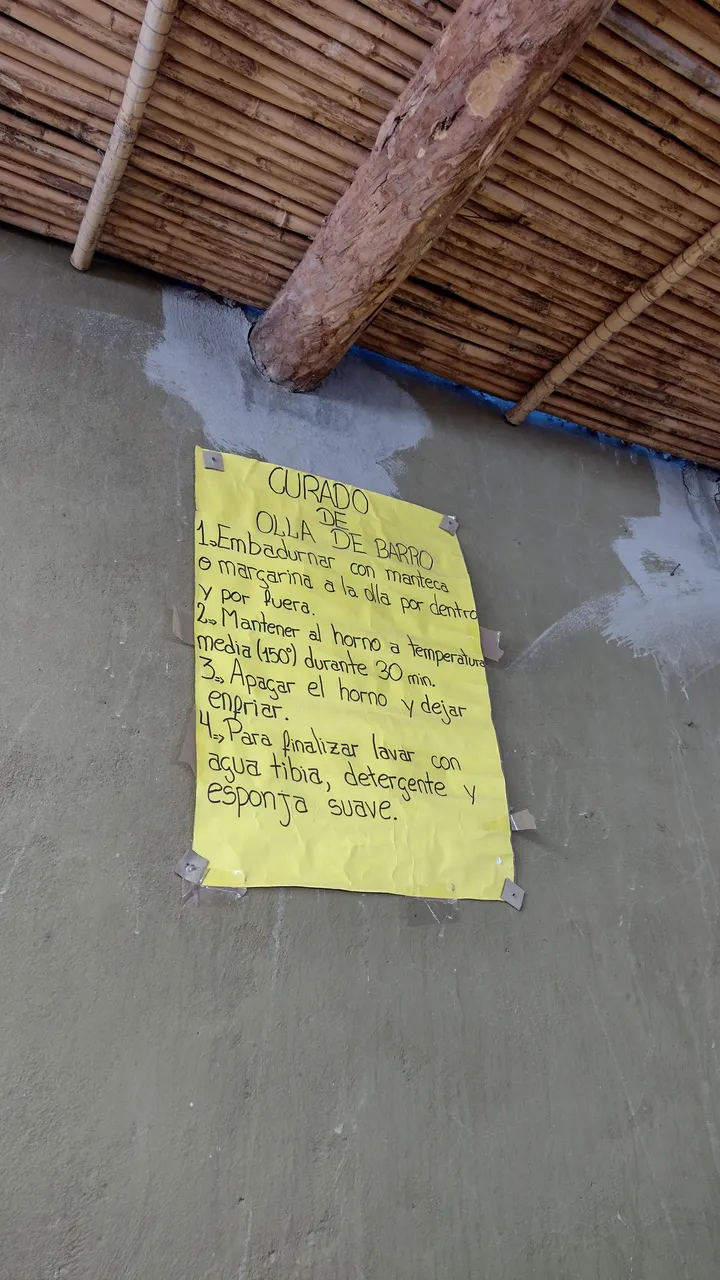 CURADO
DE
OLLA DE BARRO
1.Embadurnar con manteca
o margarina a la olla por dentro
y por fuera.
2.» Mantener al horno a temperatura
media (150°) durante 30 min.
3.» Apagar el horno y dejar
enfriar.
4.» Para finalizar lavar con
agua tibia, detergente y
esponja suave.